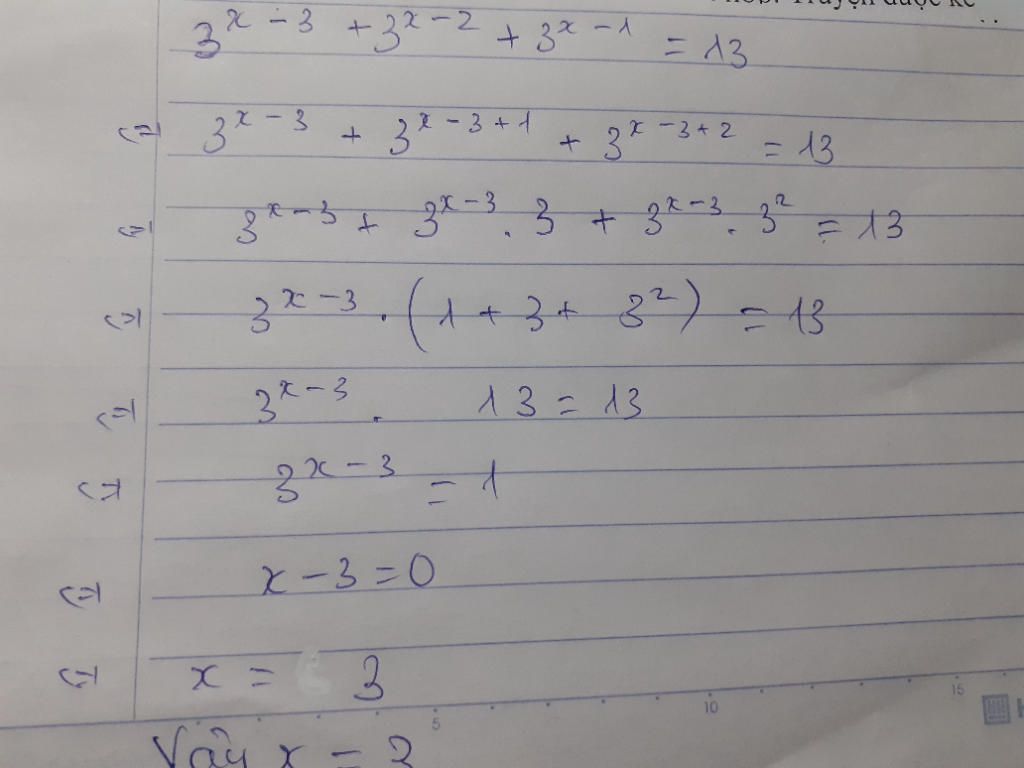 Truyện được kể
3^{x-3} + 3^{x-2} + 3^{x-1} = 13
<=> 3^{x-3} + 3^{x-3+1} + 3^{x-3+2} = 13
<=> 3^{x-3} + 3^{x-3} . 3 + 3^{x-3} . 3^2 = 13
<=> 3^{x-3} . (1 + 3 + 3^2) = 13
<=> 3^{x-3} . 13 = 13
<=> 3^{x-3} = 1
<=> x - 3 = 0
<=> x = 3
5 10 15
Vậy x = 3